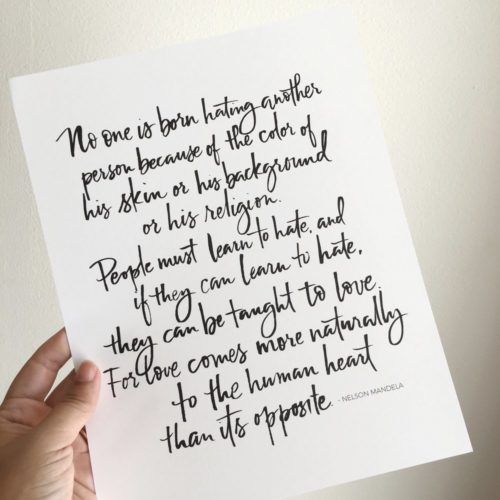 No one is born hating another
person because of the color of
his skin or his background
or his religion.
People must learn to hate, and
if they can learn to hate,
they can be taught to love.
For love comes more naturally
to the human heart
than its opposite. - NELSON MANDELA